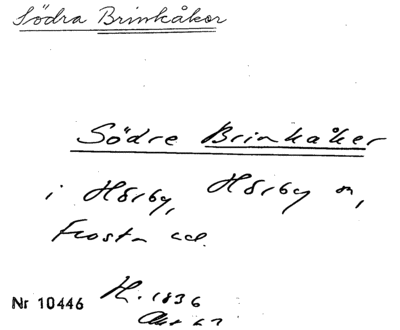 Södra Brinkåker
Södre Brinkåker
i Hörby, Hörby sn,
Frosta hd.
Nr 10446 H. 1836
Akt